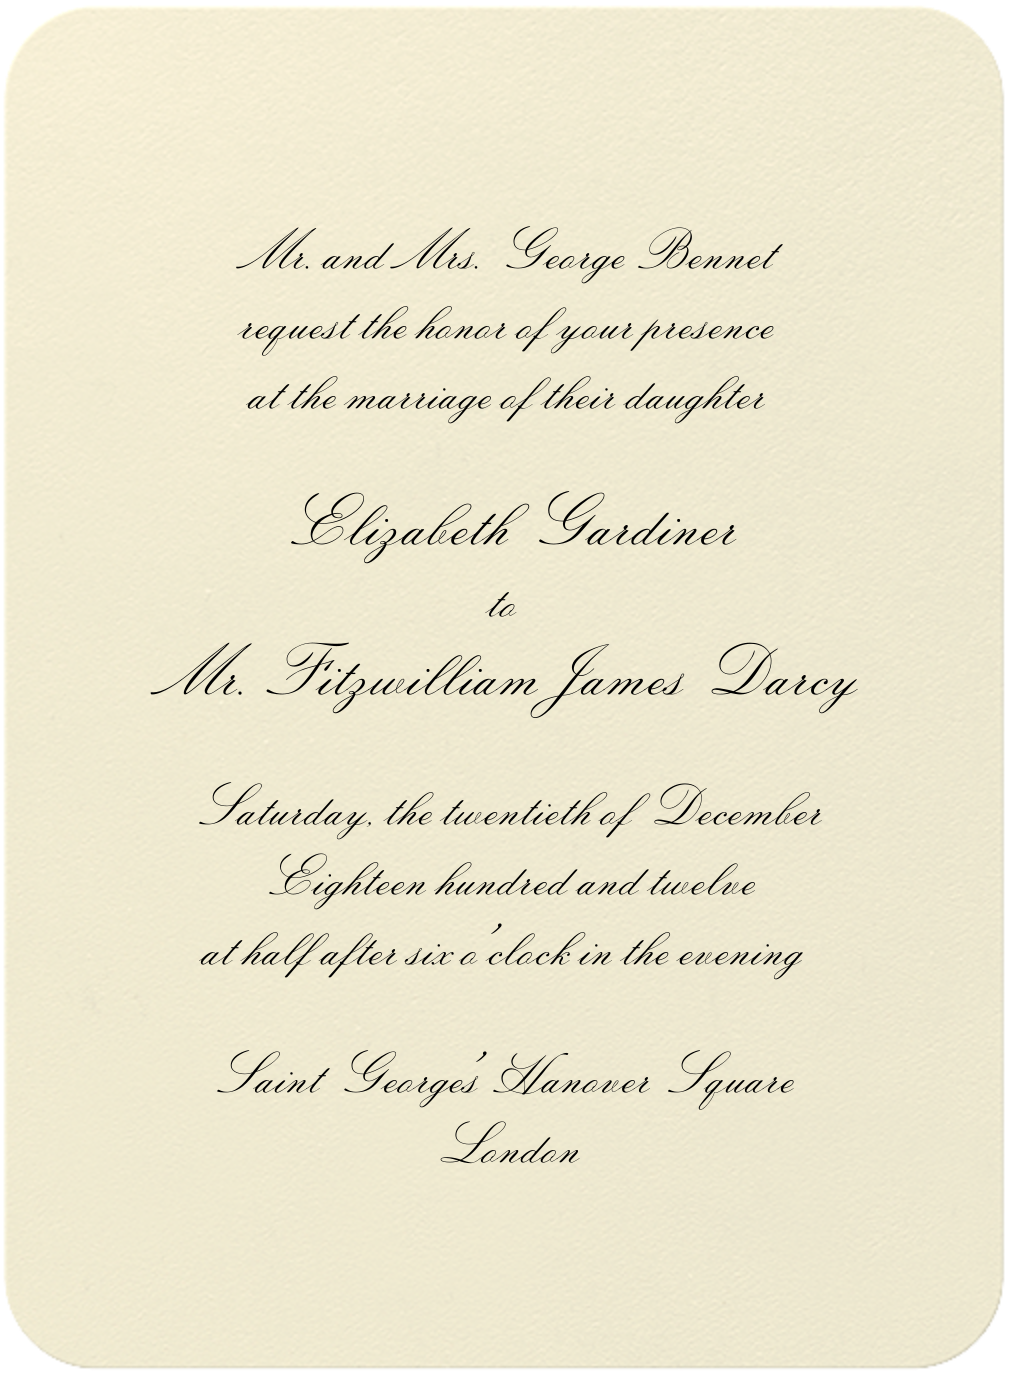 Mr. and Mrs. George Bennet
request the honor of your presence
at the marriage of their daughter
Elizabeth Gardiner
to
Mr. Fitzwilliam James Darcy
Saturday, the twentieth of December
Eighteen hundred and twelve
at half after six o'clock in the evening
Saint Georges' Hanover Square
London